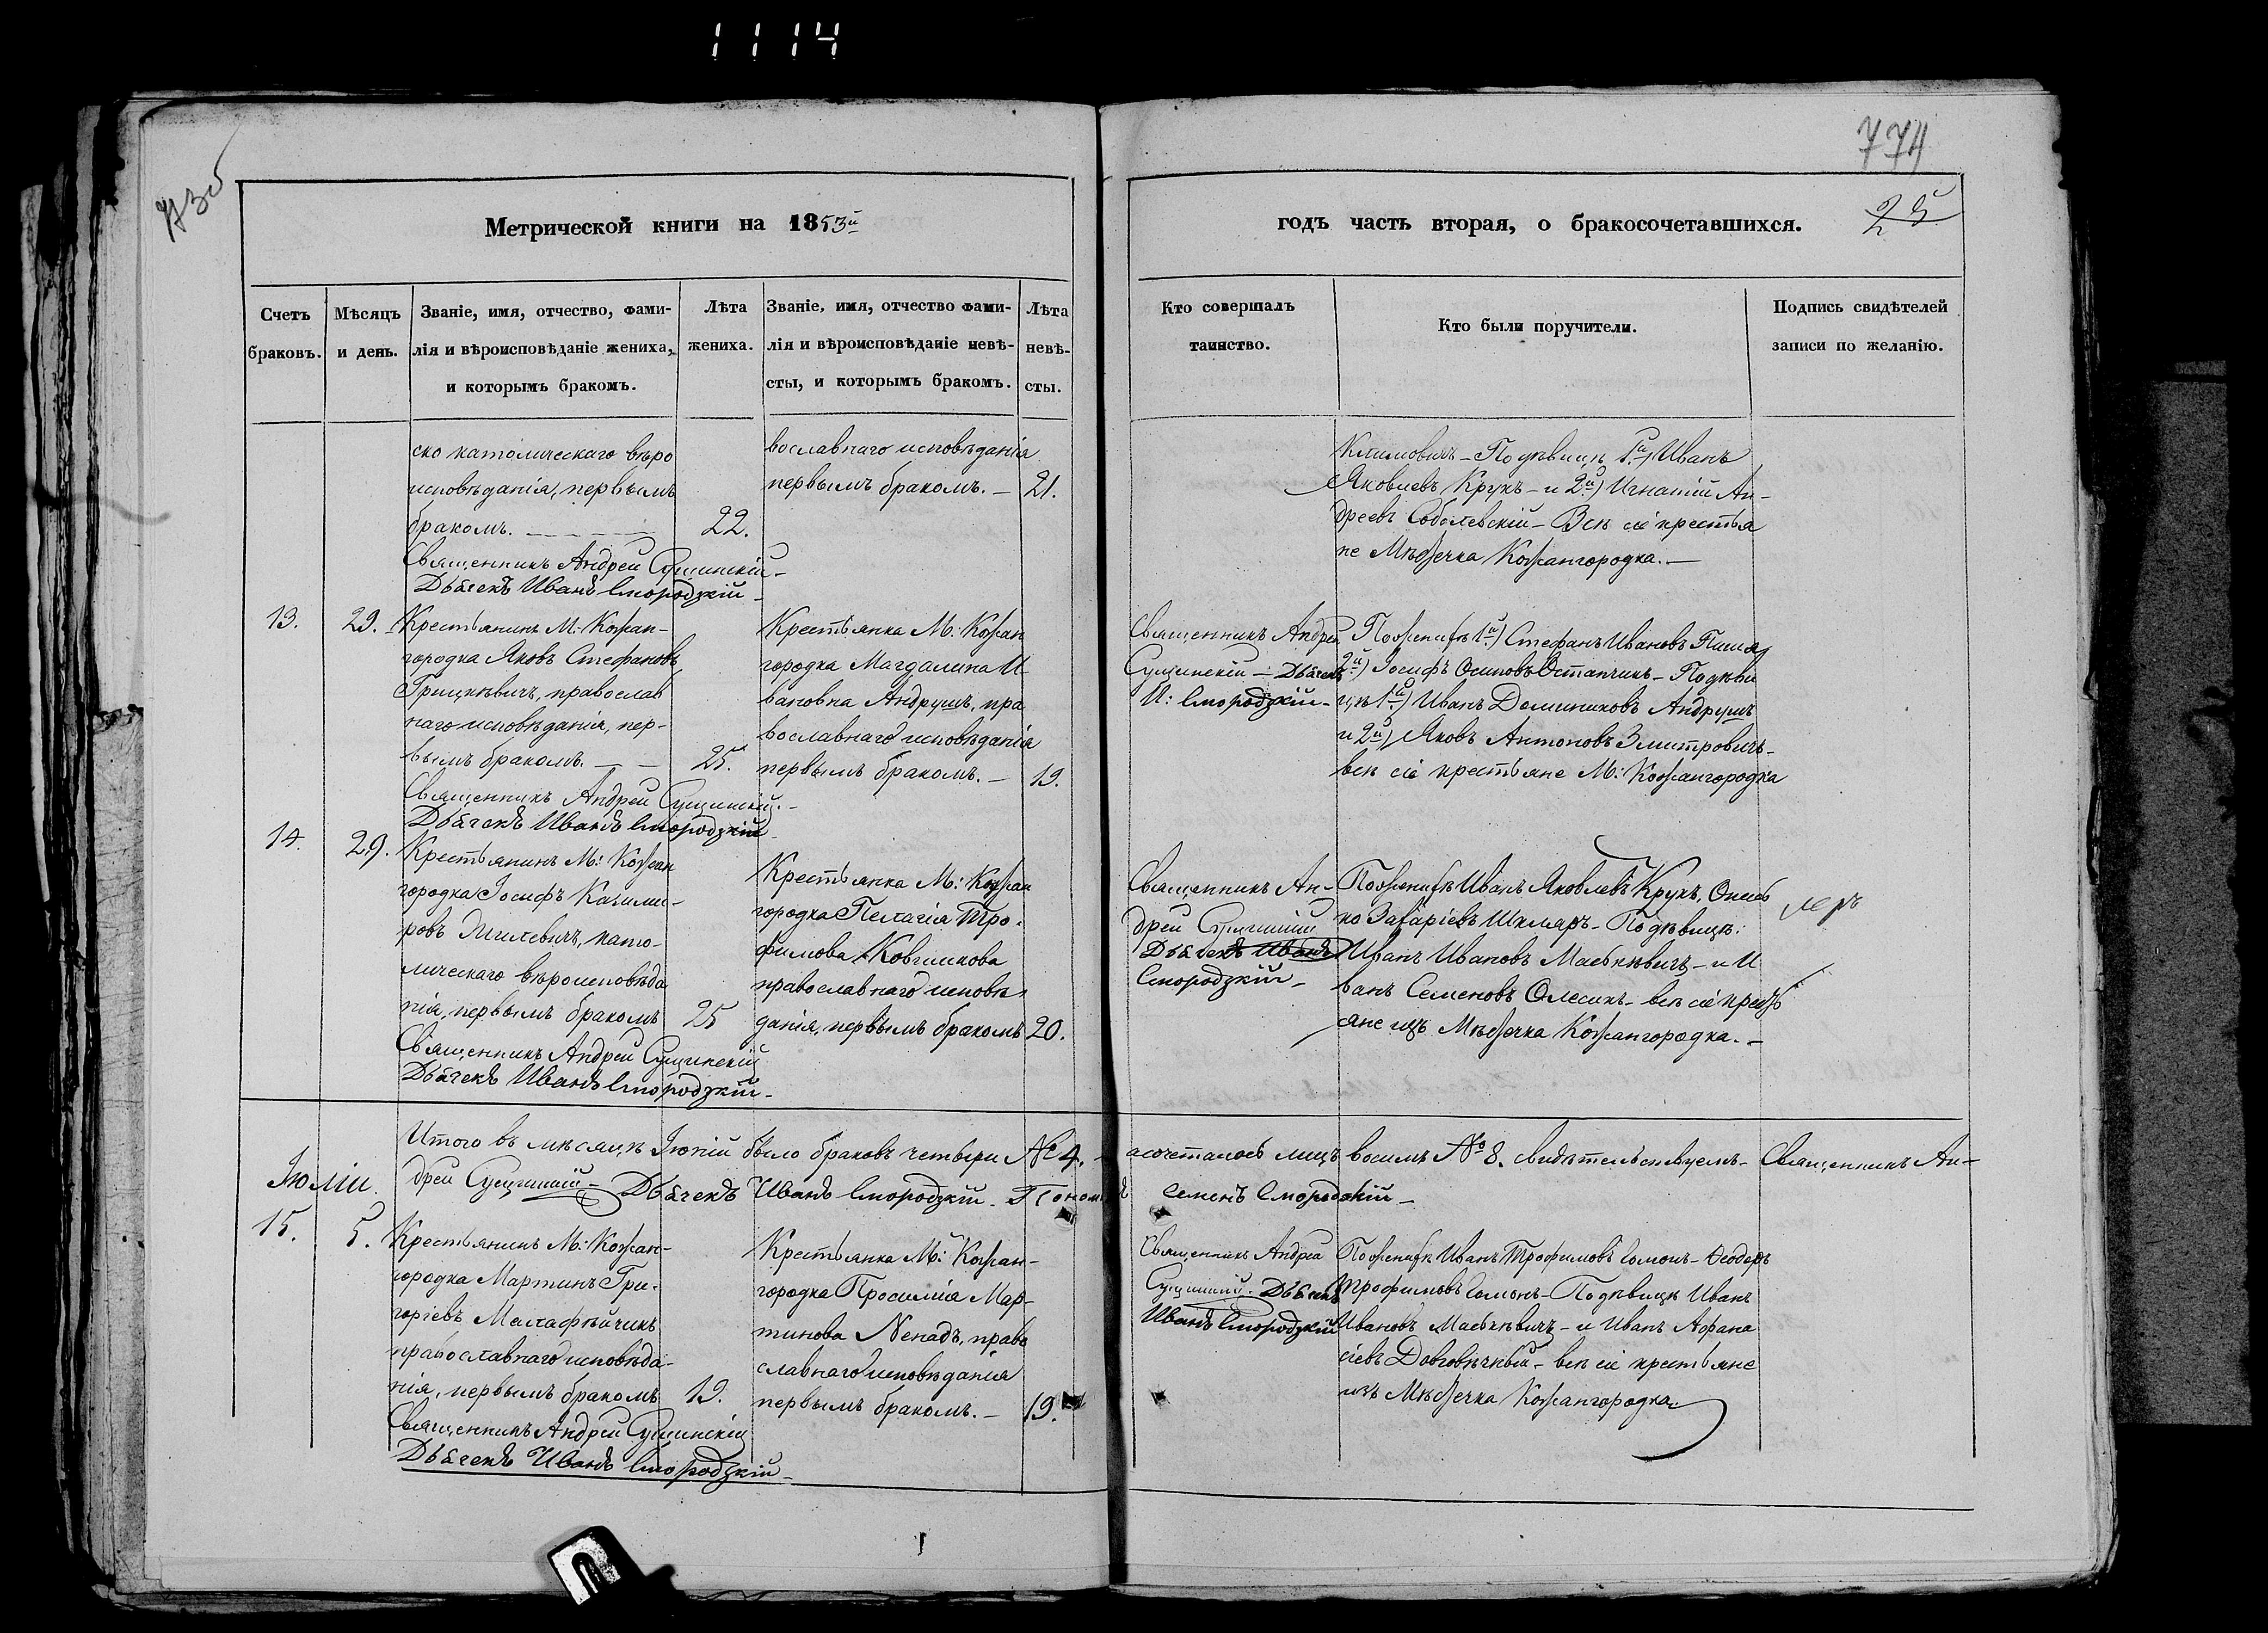 1114
774
Метрической книги на 1853й
годъ часть вторая, о бракосочетавшихся.
25
Счетъ браковъ.
Мѣсяцъ и день.
Званіе, имя, отчество, фами-
лія и вѣроисповѣданіе жениха,
и которымъ бракомъ.
Лѣта
жениха.
Званіе, имя, отчество фами-
лія и вѣроисповѣданіе невѣ-
сты, и которымъ бракомъ.
Лѣта
невѣ-
сты.
Кто совершалъ
таинство.
Кто были поручители.
Подпись свидѣтелей
записи по желанію.
ско католическаго вѣро
исповѣданія, первымъ
бракомъ. 22.
Священникъ Андрей Сущинскій -
Дьячекъ Иванъ Смородзкій -
вославнаго исповѣданія
первымъ бракомъ. - 21.
Климовичъ - По невѣстѣ 1й) Иванъ
Яковлевъ Крукъ - и 2й) Игнатій Ан-
дреевъ Соболевскій - Всѣ сіе крестья
не Мѣстечка Кожангородка. -
13. 29.
Крестьянинъ М: Кожан-
городка Яковъ Стефановъ
Грицкевичъ, православ
наго исповѣданія, пер-
вымъ бракомъ. - - 25.
Священникъ Андрей Сущинскій. -
Дьячекъ Иванъ Смородзкій -
Крестьянка М: Кожан
городка Магдалина И-
вановна Андрушъ, пра
вославнаго исповѣданія
первымъ бракомъ. - 19.
Священникъ Андрей
Сущинскій - Дьячекъ
И: Смородзкій -
По женихѣ 1й) Стефанъ Ивановъ
2й) Іосифъ Осиповъ Остапчикъ - По невѣ
1й) Иванъ Доминиковъ Андрушъ
и 2й) Яковъ Антоновъ Змитровичъ -
всѣ сіе крестьяне М: Кожангородка
14. 29.
Крестьянинъ М: Кожан
городка Іосифъ Казими-
ровъ католическаго вѣроисповѣда
нія, первымъ бракомъ 25
Священникъ Андрей Сущинскій
Дьячекъ Иванъ Смородзкій -
Крестьянка М: Кожан
городка Пелагія Тро-
фимова Ковшикова
православнаго исповѣ
данія, первымъ бракомъ 20.
Священникъ Ан-
дрей Сущинскій
Дьячекъ Иванъ
Смородзкій -
По женихѣ Иванъ Яковлевъ Крукъ,
Захаріевъ Шкляръ - По невѣстѣ:
Иванъ Ивановъ - и И
ванъ Семеновъ Олесикъ - всѣ сіе крестья
яне изъ Мѣстечка Кожангородка. -
Итого въ мѣсяцѣ Іюній было браковъ четыри № 4. - а сочеталось лицъ восимъ № 8. свидѣтельствуемъ - Священникъ Ан-
дрей Сущинскій - Дьячекъ Иванъ Смородзкій. Пономарь Семенъ Смородскій -
Іюлій.
15. 5.
Крестьянинъ М: Кожан-
городка Мартинъ Гри-
горіевъ Малафѣйчикъ
православнаго исповѣда-
нія, первымъ бракомъ 19.
Священникъ Андрей Сущинскій
Дьячекъ Иванъ Смородзкій -
Крестьянка М: Кожан-
городка Просимія Мар-
тинова Ненадъ, право
славнаго исповѣданія
первымъ бракомъ. - 19.
Священникъ Андрей
Сущинскій. Дьячекъ
Иванъ Смородзкій
По женихѣ Иванъ Трофимовъ Гомонъ - Ѳеодоръ
Трофимовъ Гомонъ - По невѣстѣ Иванъ
Ивановъ - и Иванъ Афана
сіевъ - всѣ сіе крестьяне
изъ Мѣстечка Кожангородка.